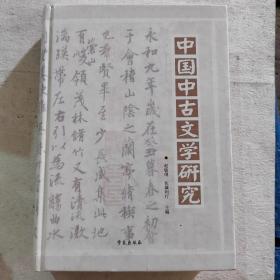 中国中古文学研究
赵敏俐 佐藤利行 主编
永和九年歲在癸丑暮春之初會
于會稽山陰之蘭亭脩稧事
也羣賢畢至少長咸集此地
有崇山峻領茂林脩竹又有清流激
湍暎帶左右引以為流觴曲水
学苑出版社